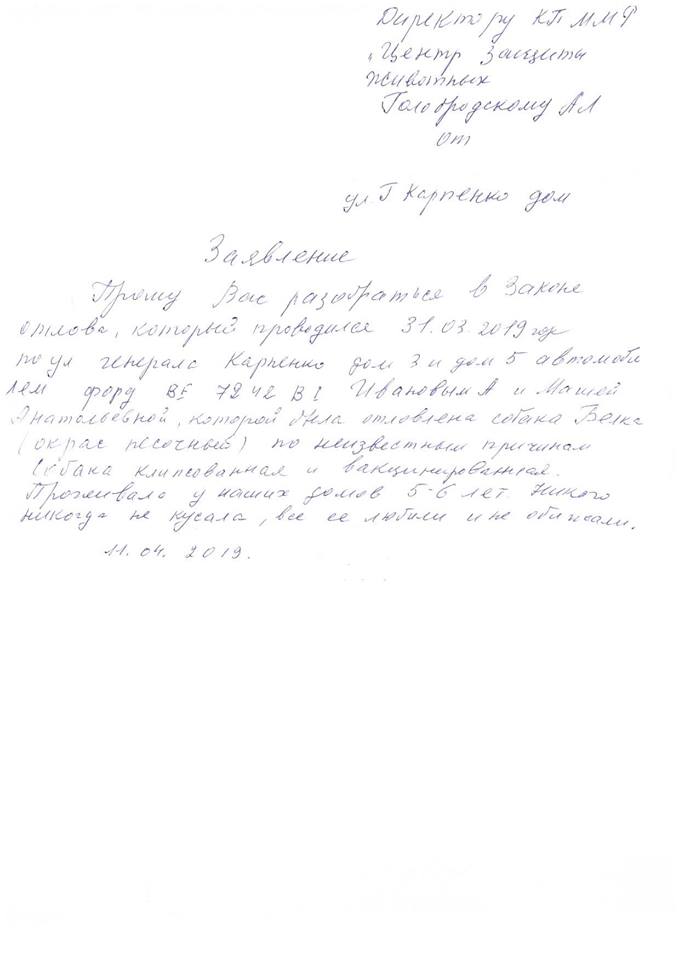 Директору КП ММФ
"Центр Защиты
Животных
Голобродскому АЛ
от
ул Г Карпенко дом
Заявление
Прошу Вас разобраться в Законе
отлова, который проводился 31.03.2019 год
по ул генерала Карпенко дом 3 и дом 5 автомоби
лем форд ВЕ 7242 ВІ Ивановым А и Машей
Анатольевной, которой была отловлена собака Белка
(окрас песочный) по неизвестным причинам
Собака клипсованная и вакцинированная.
Проживала у наших домов 5-6 лет. Никого
никогда не кусала, все ее любили и не обижали.
11.04.2019.